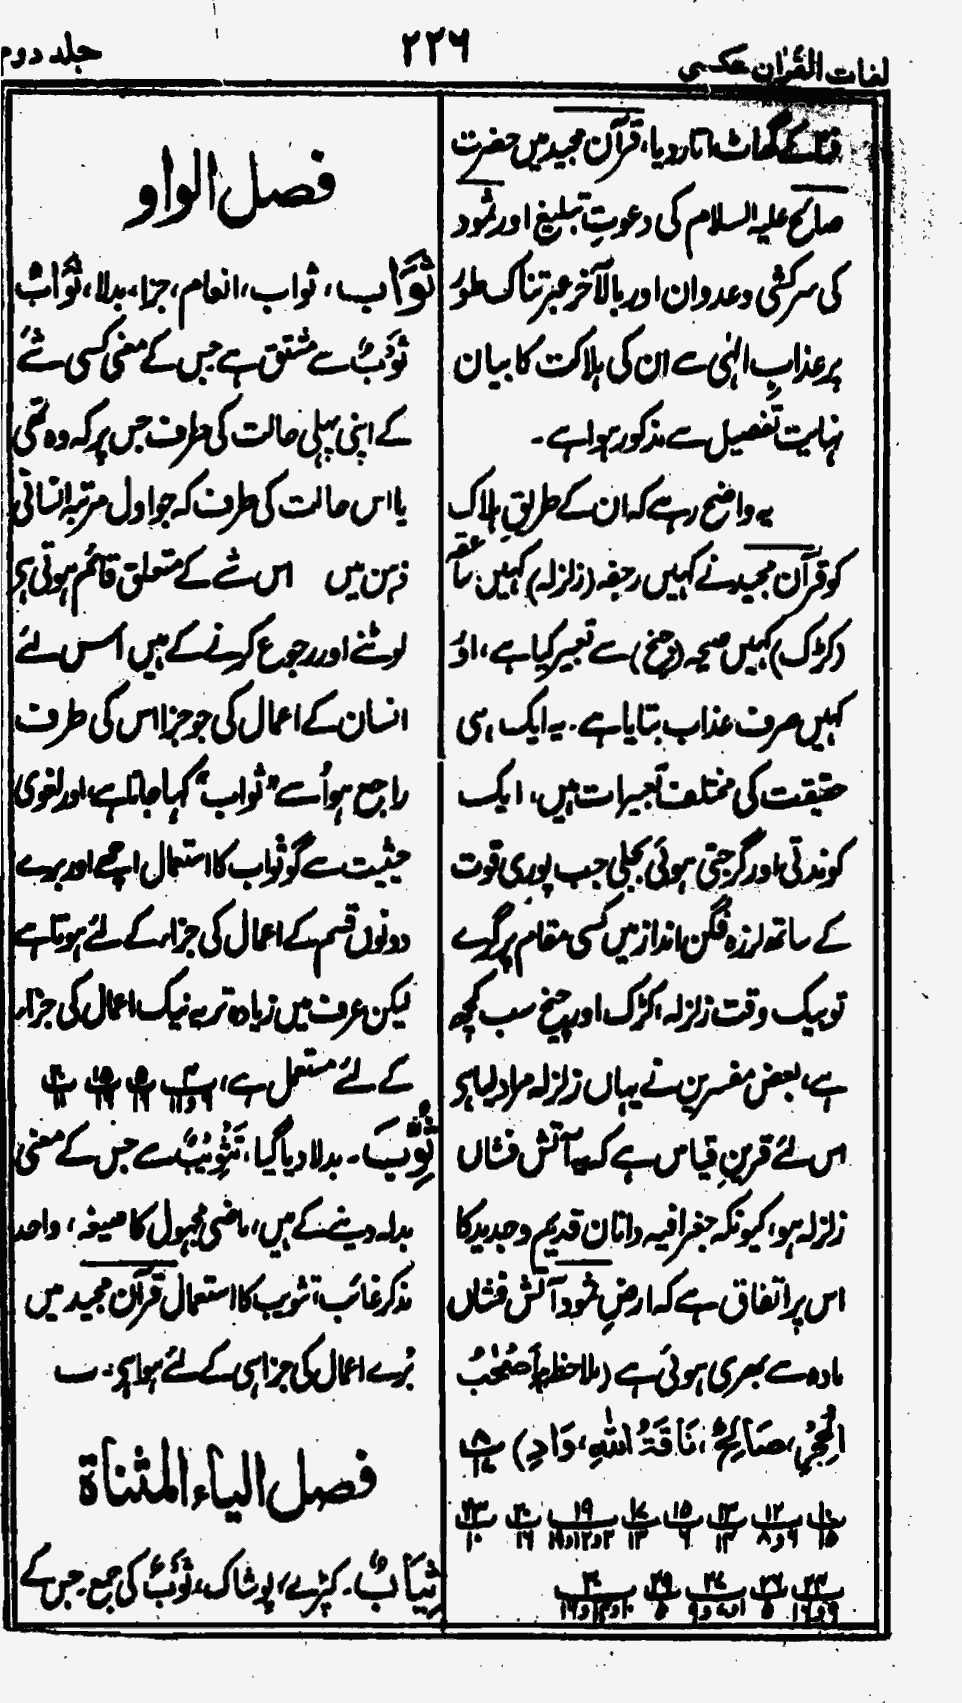 لغات القرآن عکسی
۲۲۶
جلد دوم
کے گھاٹ اتار دیا، قرآن مجید میں حضرت
صالح علیہ السلام کی دعوتِ تبلیغ اور ثمود
کی سرکشی و عدوان اور بالآخر عبرتناک طور
پر عذابِ الٰہی سے ان کی ہلاکت کا بیان
نہایت تفصیل سے مذکور ہوا ہے۔
یہ واضح رہے کہ ان کے طریقِ ہلاک
کو قرآن مجید نے کہیں رجفہ (زلزلہ) کہیں صاعقہ
(کڑک) کہیں صیحہ (چیخ) سے تعبیر کیا ہے، اور
کہیں صرف عذاب بتایا ہے۔ یہ ایک ہی
حقیقت کی مختلف تعبیرات ہیں، ایک
کوندتی اور گرجتی ہوئی بجلی جب پوری قوت
کے ساتھ لرزہ فگن انداز میں کسی مقام پر گرے
تو بیک وقت زلزلہ، کڑک اور چیخ سب کچھ
ہے، بعض مفسرین نے یہاں زلزلہ مراد لیا ہے
اس لئے قرینِ قیاس ہے کہ یہ آتش فشاں
زلزلہ ہو، کیونکہ جغرافیہ دانان قدیم و جدید کا
اس پر اتفاق ہے کہ ارضِ ثمود آتش فشاں
مادہ سے بھری ہوئی ہے (ملاحظہ ہو أَصْحٰبُ
الْحِجْرِ، صَالِحٌ، نَاقَةُ اللهِ، وَادِ) ۸
۱۰ ۱۲ ۱۳ ۱۵ ۱۷ ۱۹ ۲۰ ۲۳
۱۵ ۹و۸ ۱۴ ۶ ۱۳ ۱۶ ۱۰
۲۴ ۲۶ ۲۷ ۲۹ ۳۰
۵ ۵
فصل الواو
ثَوَاب، ثواب، انعام، جزا، بدلا، ثَوَابٌ
ثَوْبٌ سے مشتق ہے جس کے معنی کسی شئے
کے اپنی پہلی حالت کی طرف جس پر کہ وہ تھی
یا اس حالت کی طرف کہ جو اول مرتبہ انسانی
ذہن میں اس شئے کے متعلق قائم ہوتی ہے
لوٹنے اور رجوع کرنے کے ہیں اس لئے
انسان کے اعمال کی جو جزا اس کی طرف
راجع ہو اُسے "ثواب" کہا جاتا ہے، اور لغوی
حیثیت سے گو ثواب کا استعمال اچھے اور برے
دونوں قسم کے اعمال کی جزاء کے لئے ہوتا ہے
لیکن عرف میں زیادہ تر یہ نیک اعمال کی جزاء
کے لئے مستعمل ہے، ۴ ۵ ۱۵ ۲۰
ثُوِّبَ۔ بدلا دیا گیا، تَثْوِيْبٌ سے جس کے معنی
بدلہ دینے کے ہیں، ماضی مجہول کا صیغہ، واحد
مذکر غائب، تثویب کا استعمال قرآن مجید میں
بُرے اعمال کی جزا ہی کے لئے ہوا ہے۔
فصل الیاء المثناة
ثِيَابٌ۔ کپڑے، پوشاک، ثَوْبٌ کی جمع۔ جس کے